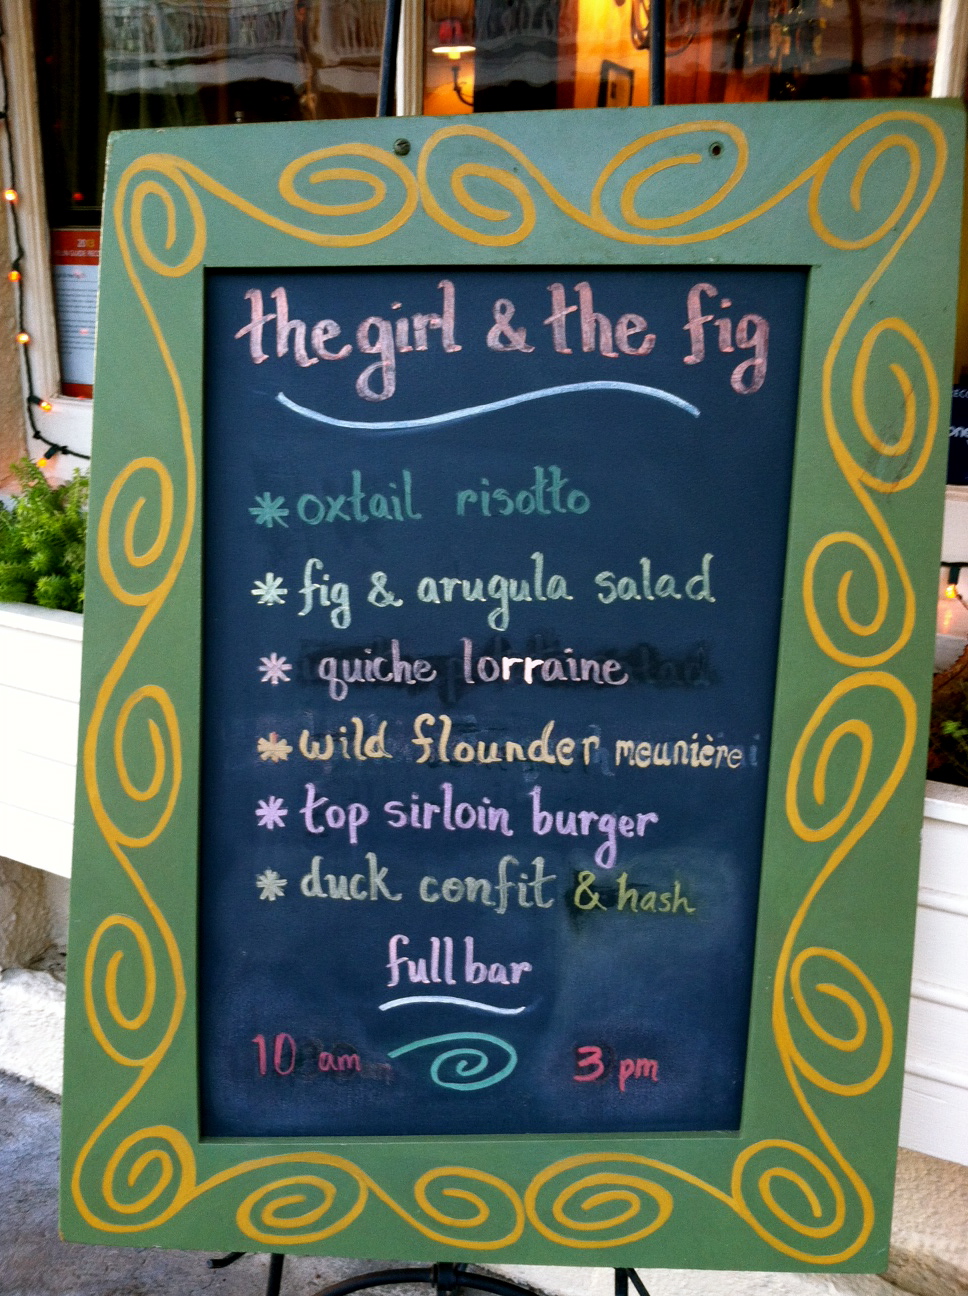 the girl & the fig
* oxtail risotto
* fig & arugula salad
* quiche lorraine
* wild flounder meunière
* top sirloin burger
* duck confit & hash
full bar
10 am 3 pm
2013